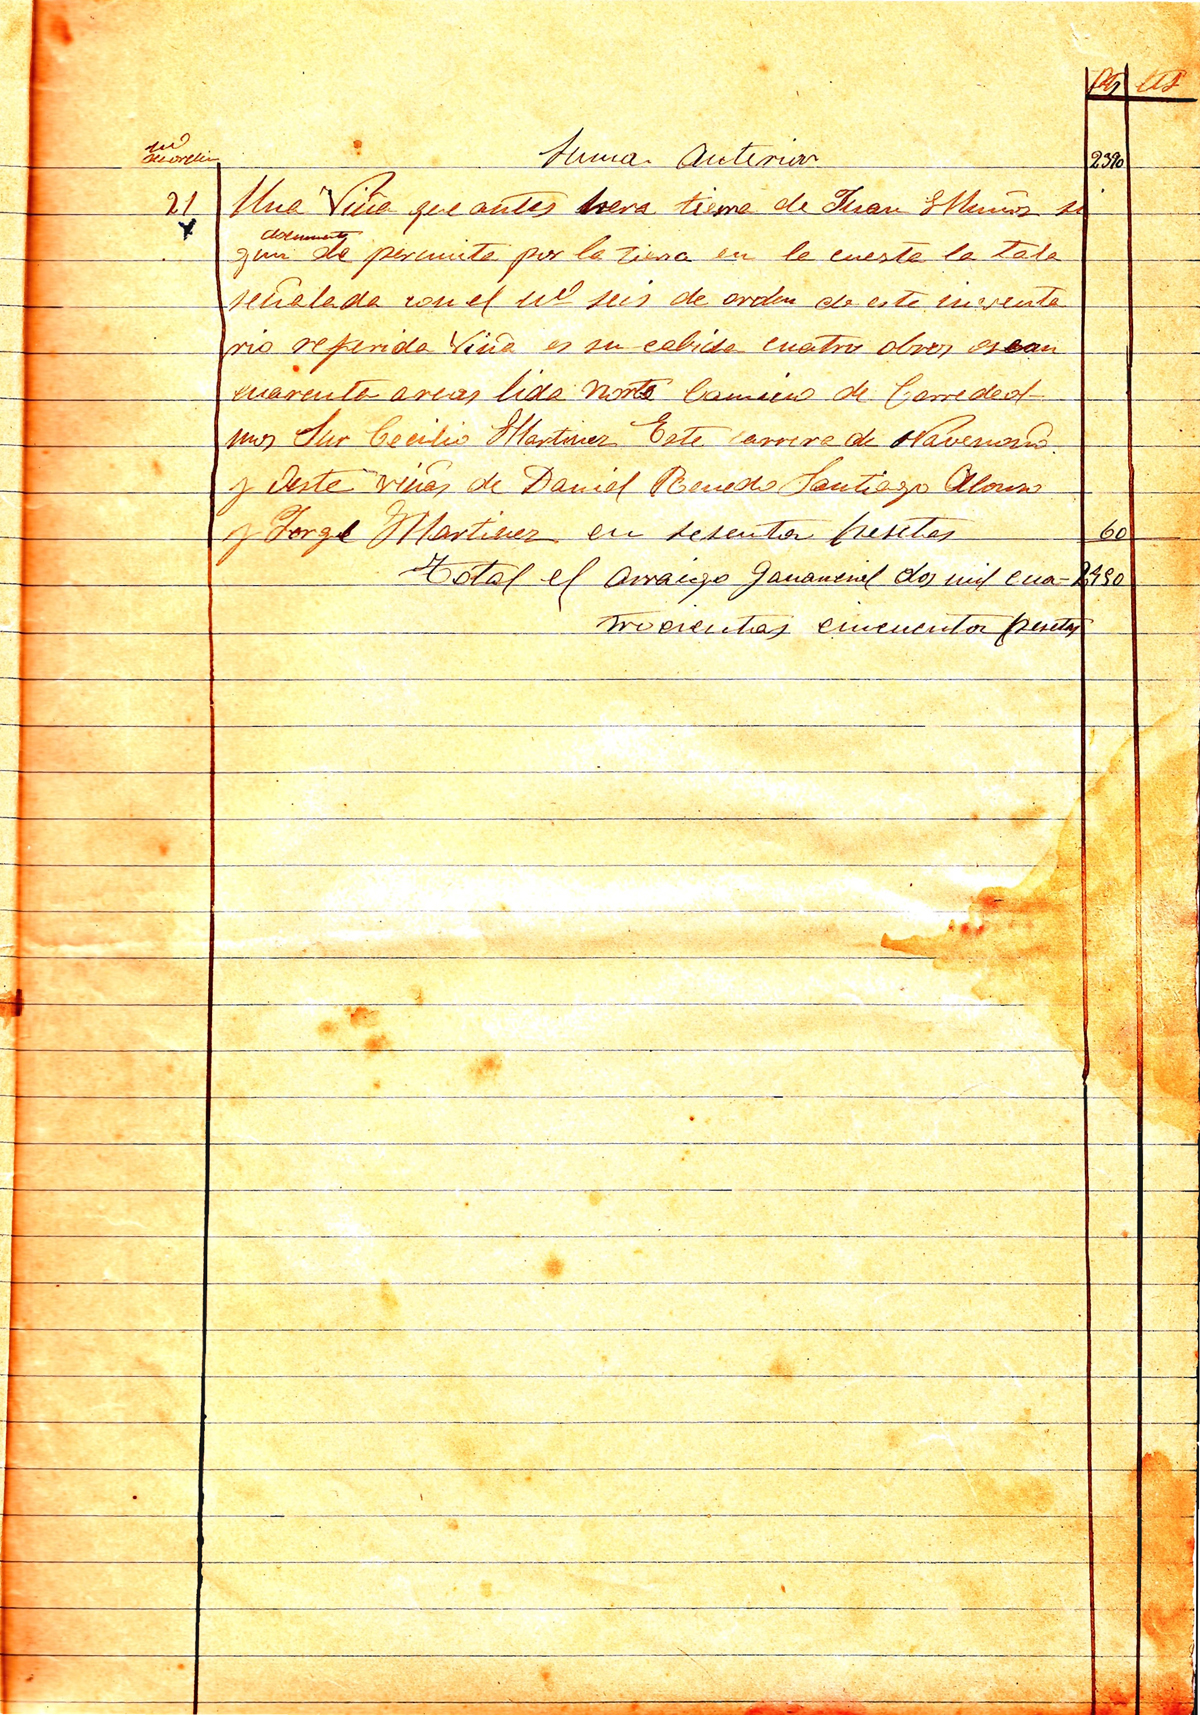 Pts cts
nº
de orden Suma anterior 2390
21 Una Viña que antes hera tierra de Juan Muñoz se
documento
gun de permuta por la tierra en la cuesta la tala
señalada con el nº seis de orden de este inventa
rio referida Viña es su cabida cuatro obros o sean
cuarenta areas lida Norte Camino de
Sur Cecilio Martinez Este carrera de
y Oeste viñas de Daniel Renedo Santiago Alonso
y Jorge Martinez en sesenta pesetas 60
Total el arraigo Gananciel dos mil cua- 2450
trocientas cincuenta pesetas